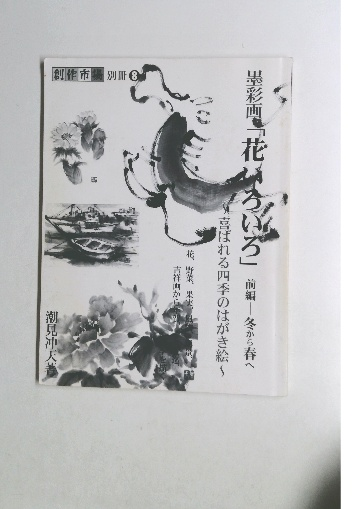 創作市場 別冊8
墨彩画「花いろいろ」 前編―冬から春へ
喜ばれる四季のはがき絵〜
花、野菜、果実
吉祥画か
潮見冲天著